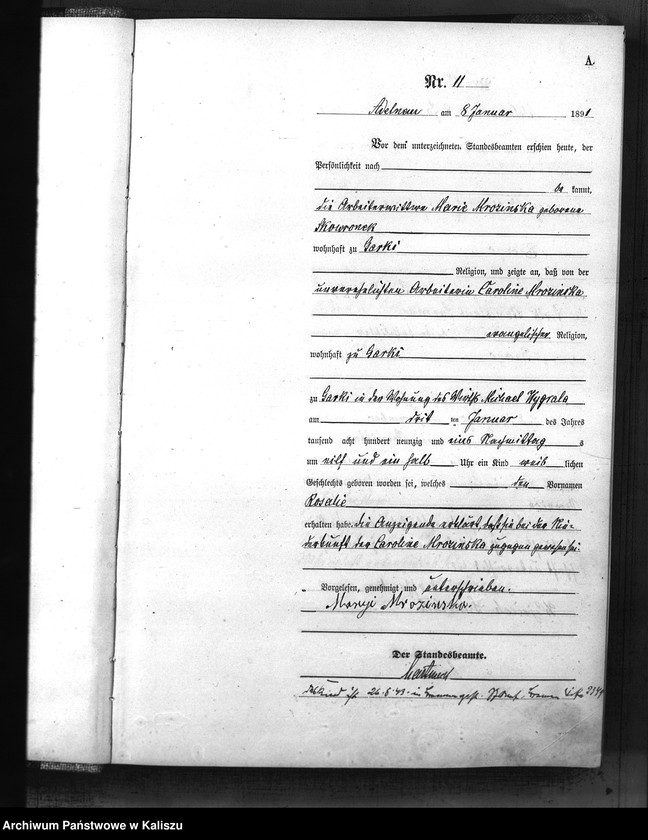 A.
Nr. 11
Adelnau am 8 Januar 1891
Vor dem unterzeichneten Standesbeamten erschien heute, der
Persönlichkeit nach
be kannt,
die Arbeiterwittwe Marie Mrozinska geborene
Skowronek
wohnhaft zu Garki
Religion, und zeigte an, daß von der
unverehelichten Arbeiterin Caroline Mrozinska
evangelischer Religion,
wohnhaft zu Garki
zu Garki in der Wohnung des Wirths Michael
am drit ten Januar des Jahres
tausend acht hundert neunzig und eins Nachmittag s
um eilf und ein halb Uhr ein Kind weib lichen
Geschlechts geboren worden sei, welches den Vornamen
Rosalie
erhalten habe. die Anzeigende erklärt, daß sie bei der Nie-
derkunft der Caroline Mrozinska zugegen gewesen sei.
Vorgelesen, genehmigt und unterschrieben.
Maryi Mrozinska.
Der Standesbeamte.
26.5.43 in
Archiwum Państwowe w Kaliszu